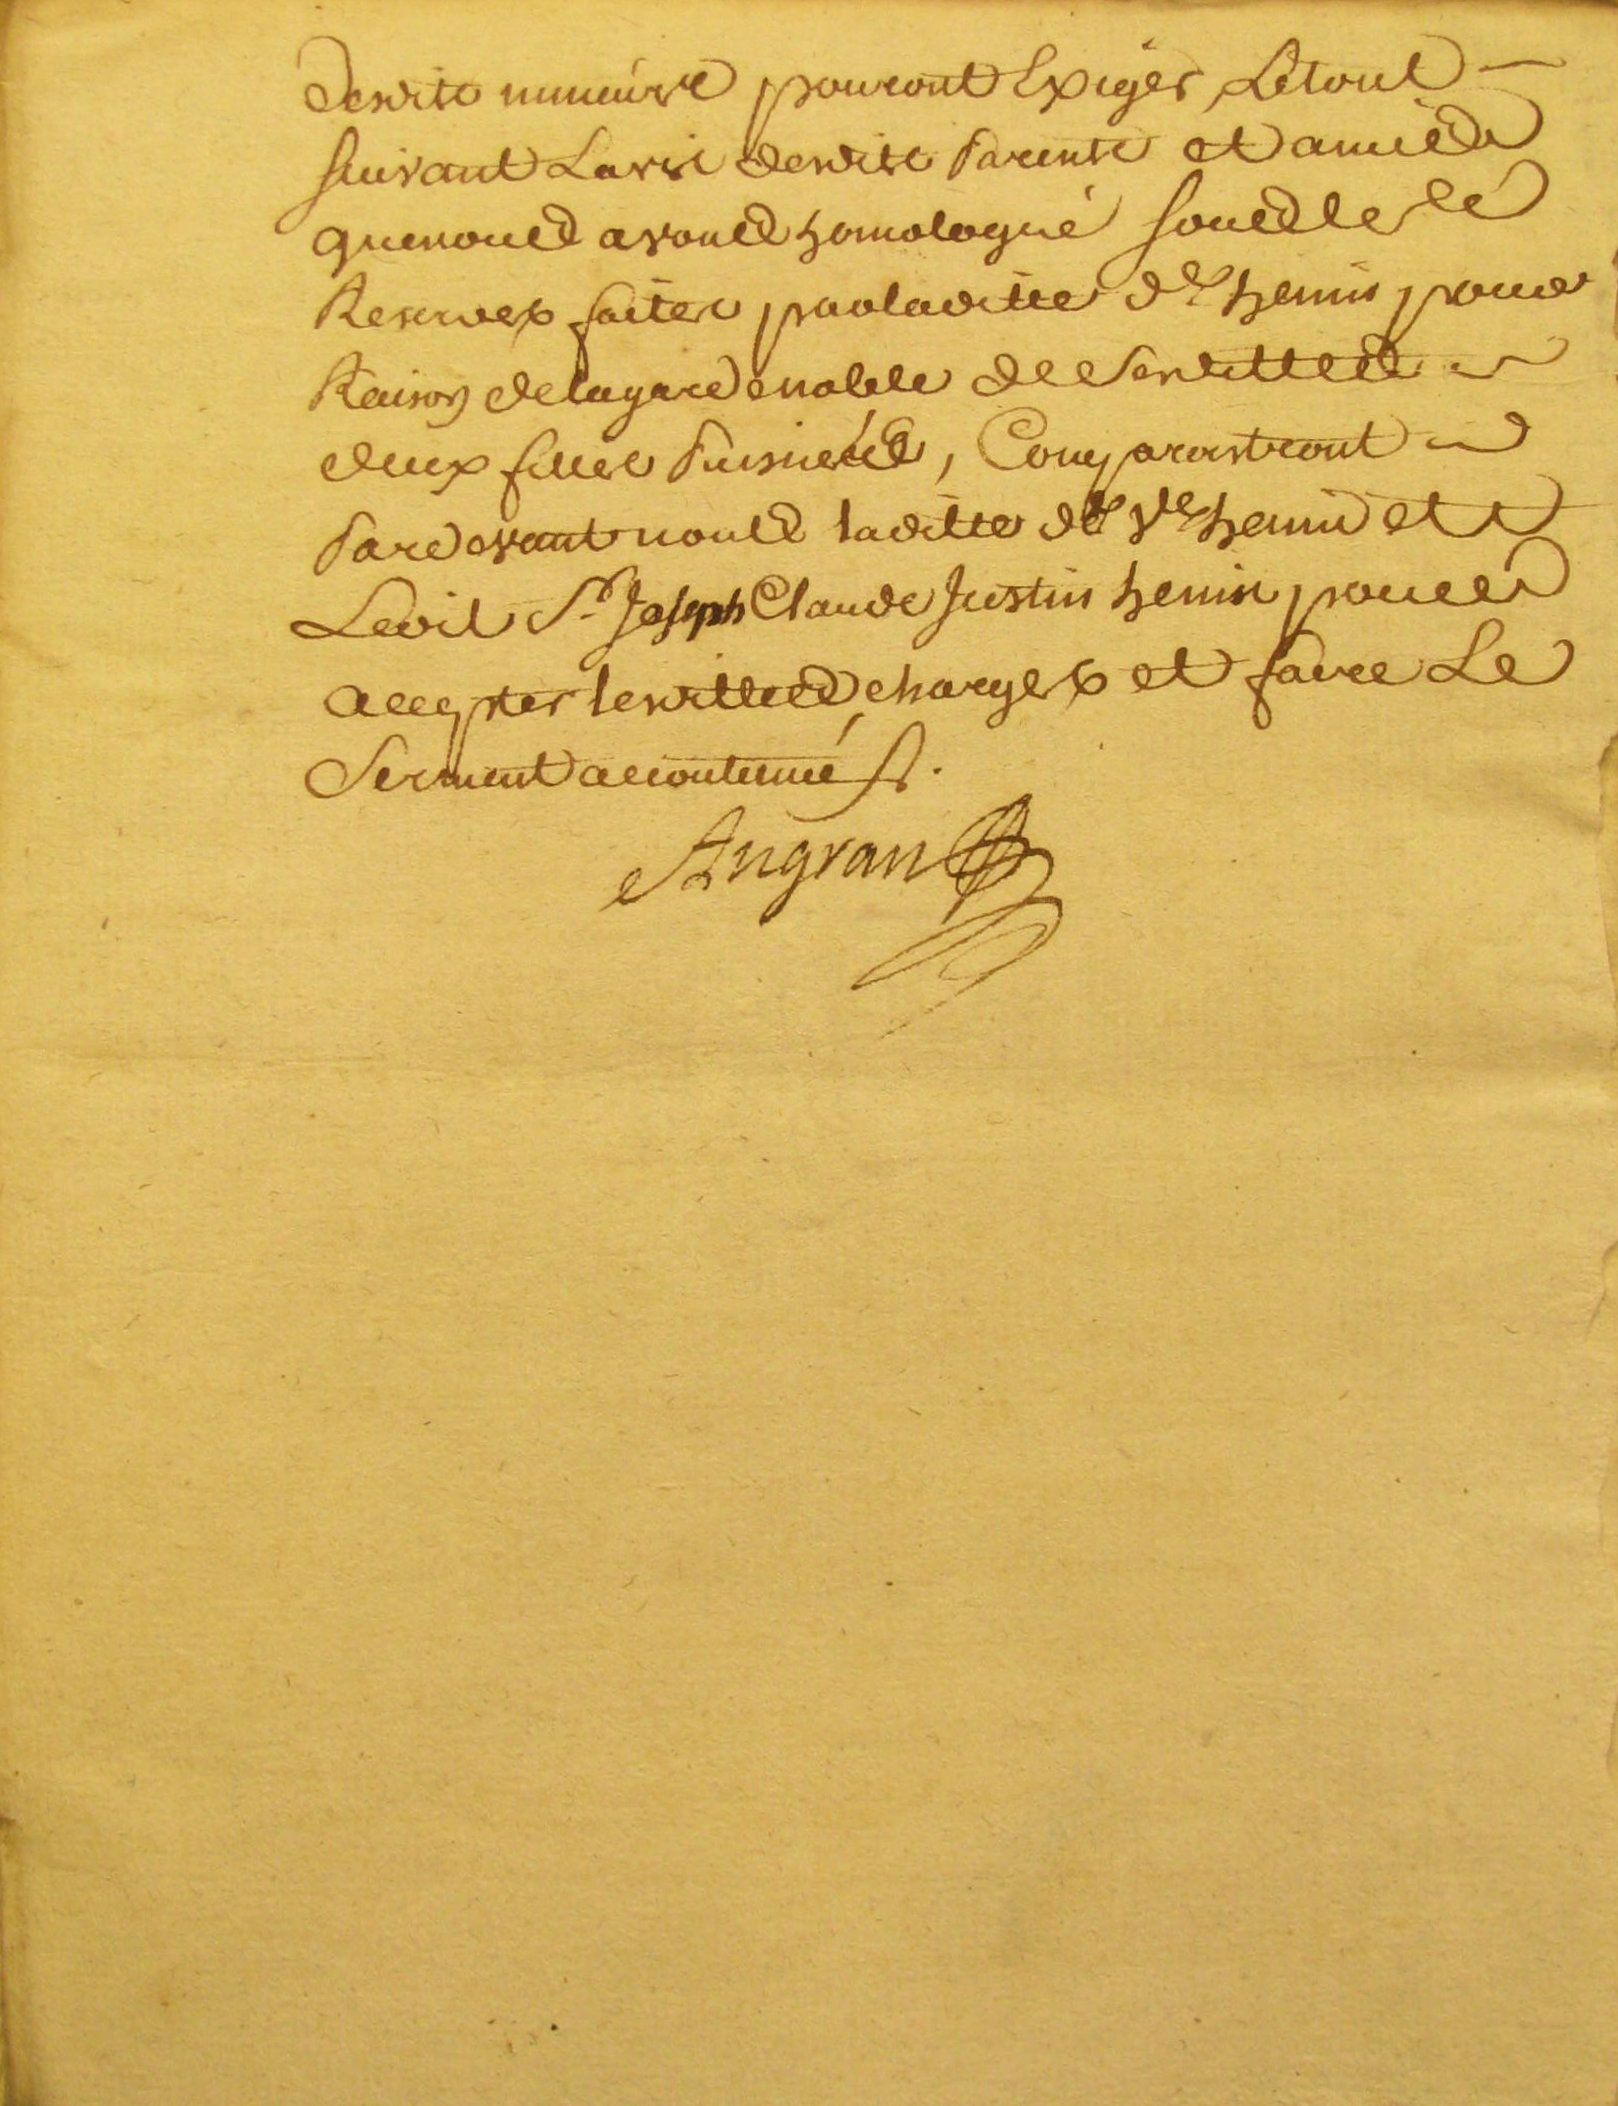 Desdits mineurs pouront Exiger, Letout
suivant Lavis desdits Parents et amis
quenous avons homologué sous les
Reserves faites parladitte de henin pour
Raison delagardenoble de Sesdittes
deux filles Puisnées, Comparoistront
Pardevant nous laditte de Ve henin et
Ledit Sr. Joseph Claude Justin henin pour
accepter lesdittes charges et faire Le
Serment accoutumé ./.
Angran